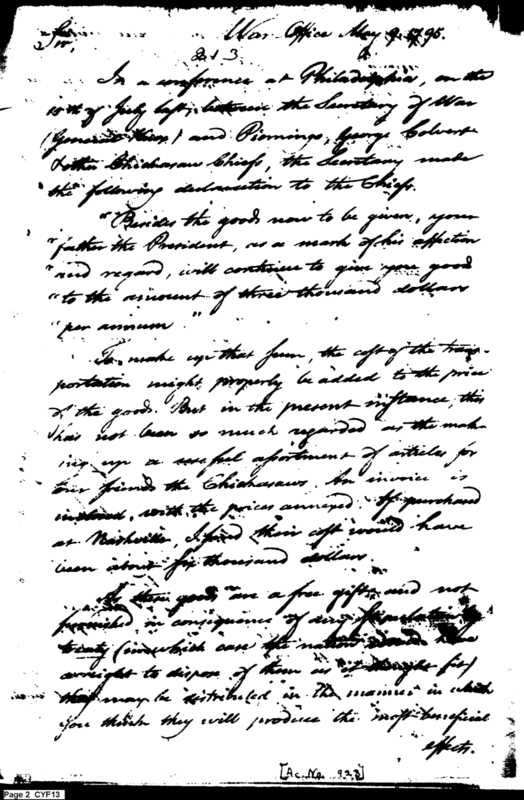 Sir,
War Office May 9. 1795.
2 & 3
In a conference at Philadelphia, on the
of July last, between the Secretary of War
(General Knox) and Piomingo, George Colbert
& other Chickasaw Chiefs, the Secretary made
the following declaration to the Chiefs.
"Besides the goods now to be given, your
"father the President, as a mark of his affection
"and regard, will continue to give you goods
"to the amount of three thousand dollars
"per annum."
To make up that sum, the cost of the trans-
portation might properly be added to the price
of the goods. But in the present instance, this
has not been so much regarded as the mak-
ing up a useful assortment of articles for
our friends the Chickasaws. An invoice is
inclosed, with the prices annexed. If purchased
at Nashville, I find their cost would have
been about six thousand dollars.
As these goods are a free gift, and not
furnished in consequence of any stipulation by
treaty (in which case the nation would have
a right to dispose of them as it thought fit)
they may be distributed in the manner in which
you think they will produce the most beneficial
effects.
[Ac. No. 923]
Page 2 CYF13